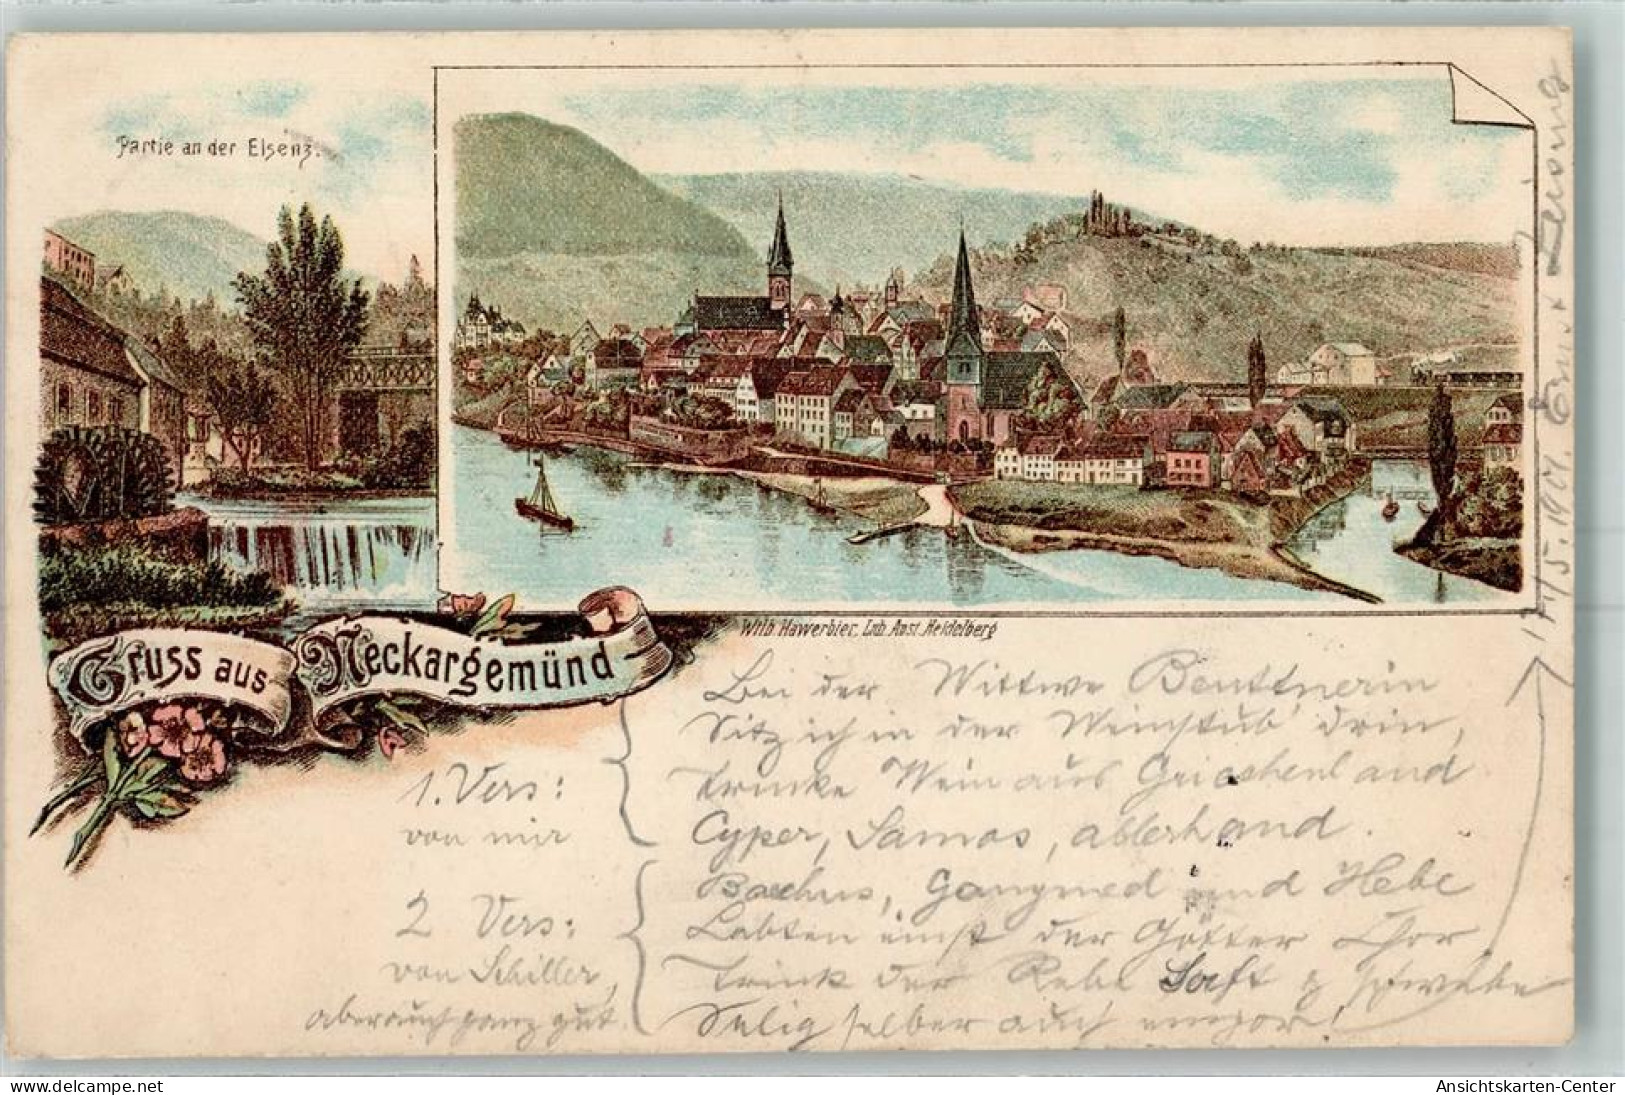 Partie an der Elsenz.
Gruss aus Neckargemünd
Wilh. Hawerbier, Lith. Anst. Heidelberg
Bei der Wittwe Beuttnerin
Sitz ich in der Weinstub' drin,
trinke Wein aus Griechenland
Cyper, Samos, allerhand.
1. Vers:
von mir
Bachus, Ganymed und Hebe
Labten einst der Götter Chor
trink der Rebe Saft & schwebe
Selig selber auch empor!
2 Vers:
von Schiller,
aber auch ganz gut.
17/5. 1901. Ernst
Ansichtskarten-Center